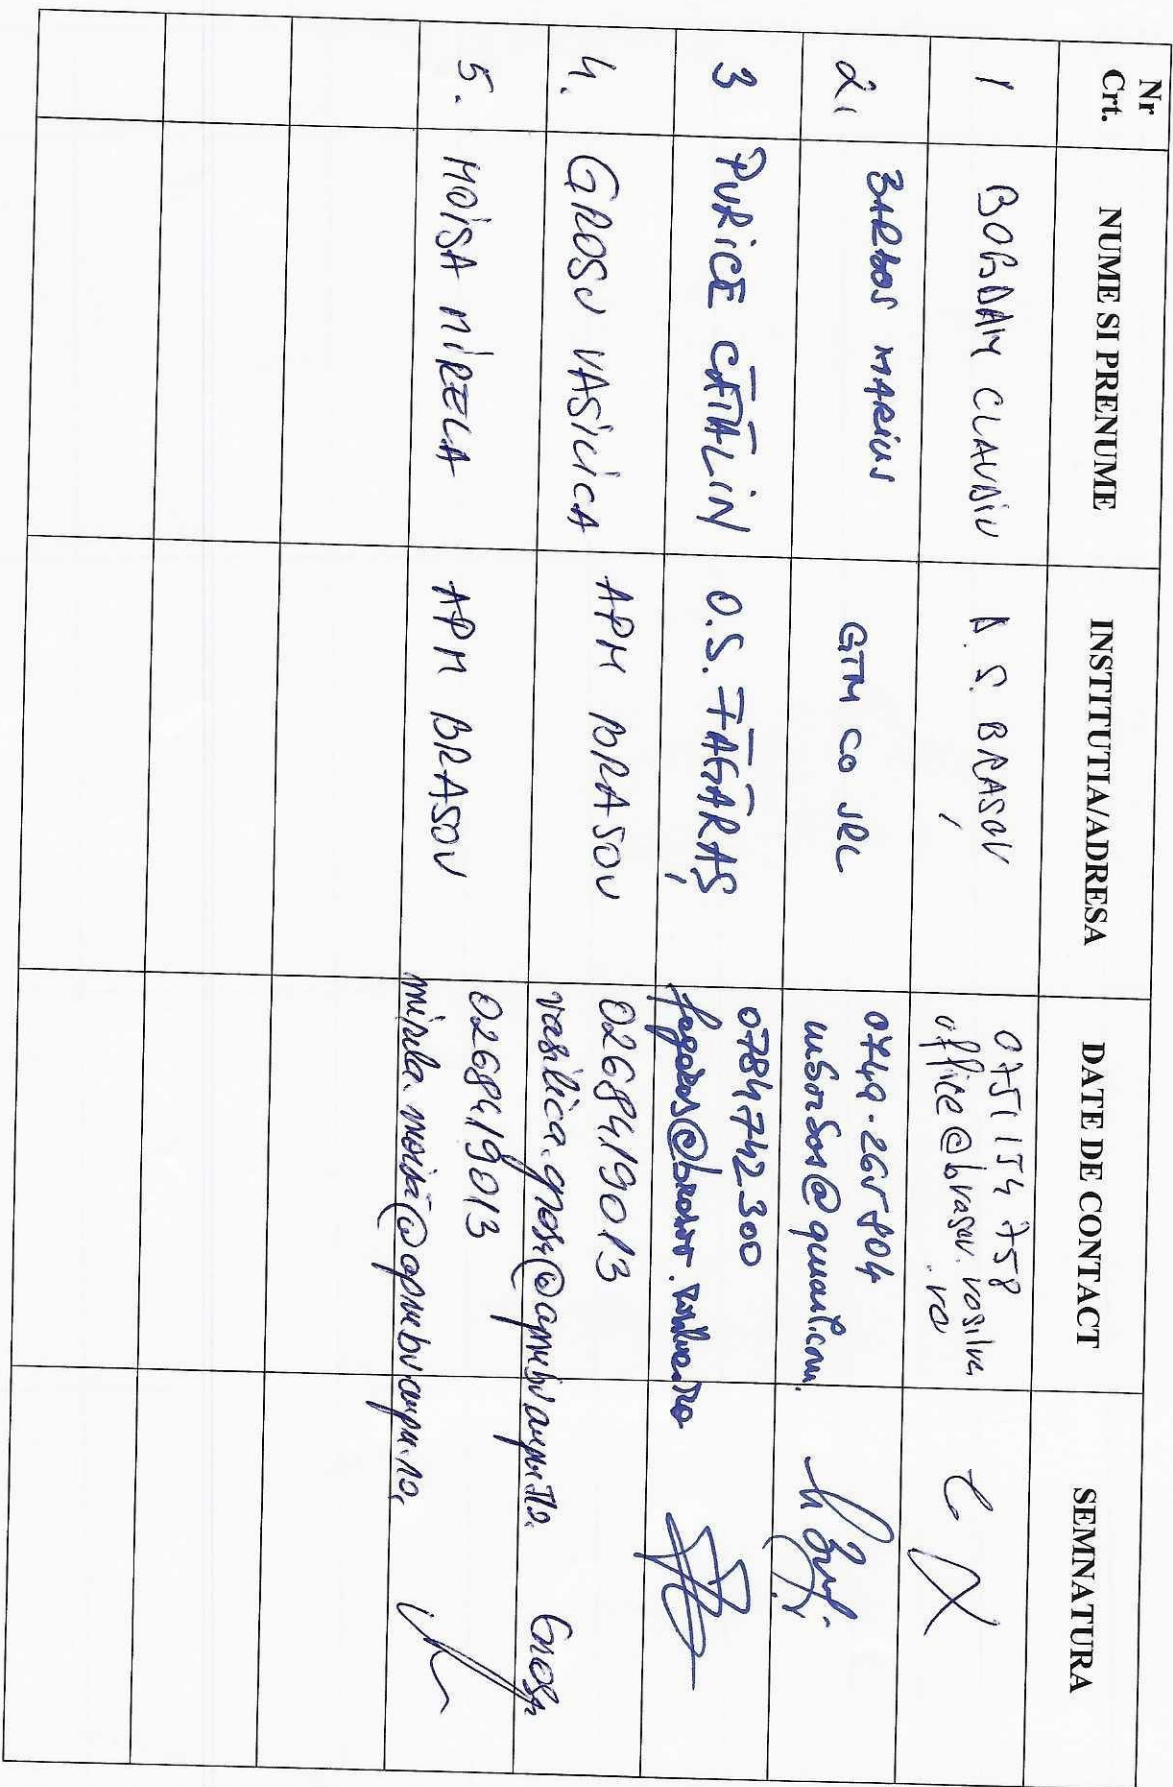 Nr Crt. NUME SI PRENUME INSTITUTIA/ADRESA DATE DE CONTACT SEMNATURA
1 BOGDAN CLAUDIU D.S. BRAȘOV 0751154758
office@brasov.rosilva
.ro
2. BARBOS MARIUS GTM CO SRL 0749.265804
@gmail.com
3 PURICE CĂTĂLIN O.S. FĂGĂRAȘ 0784742300
fagaras@brasov.rosilva.ro
4. GROSU VASILICA APM BRASOV 0268419013
vasilica.grosu@apmbv.anpm.ro
Grosu
5. MOISA MIRELA APM BRASOV 0268419013
mirela.moisa@apmbv.anpm.ro